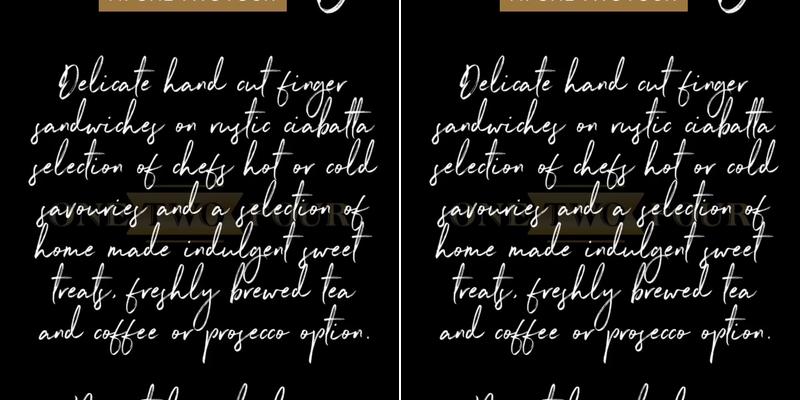 Delicate hand cut finger
sandwiches on rustic ciabatta
selection of chefs hot or cold
savouries and a selection of
home made indulgent sweet
treats. freshly brewed tea
and coffee or prosecco option.
ONE TWO FOUR
Delicate hand cut finger
sandwiches on rustic ciabatta
selection of chefs hot or cold
savouries and a selection of
home made indulgent sweet
treats. freshly brewed tea
and coffee or prosecco option.
ONE TWO FOUR